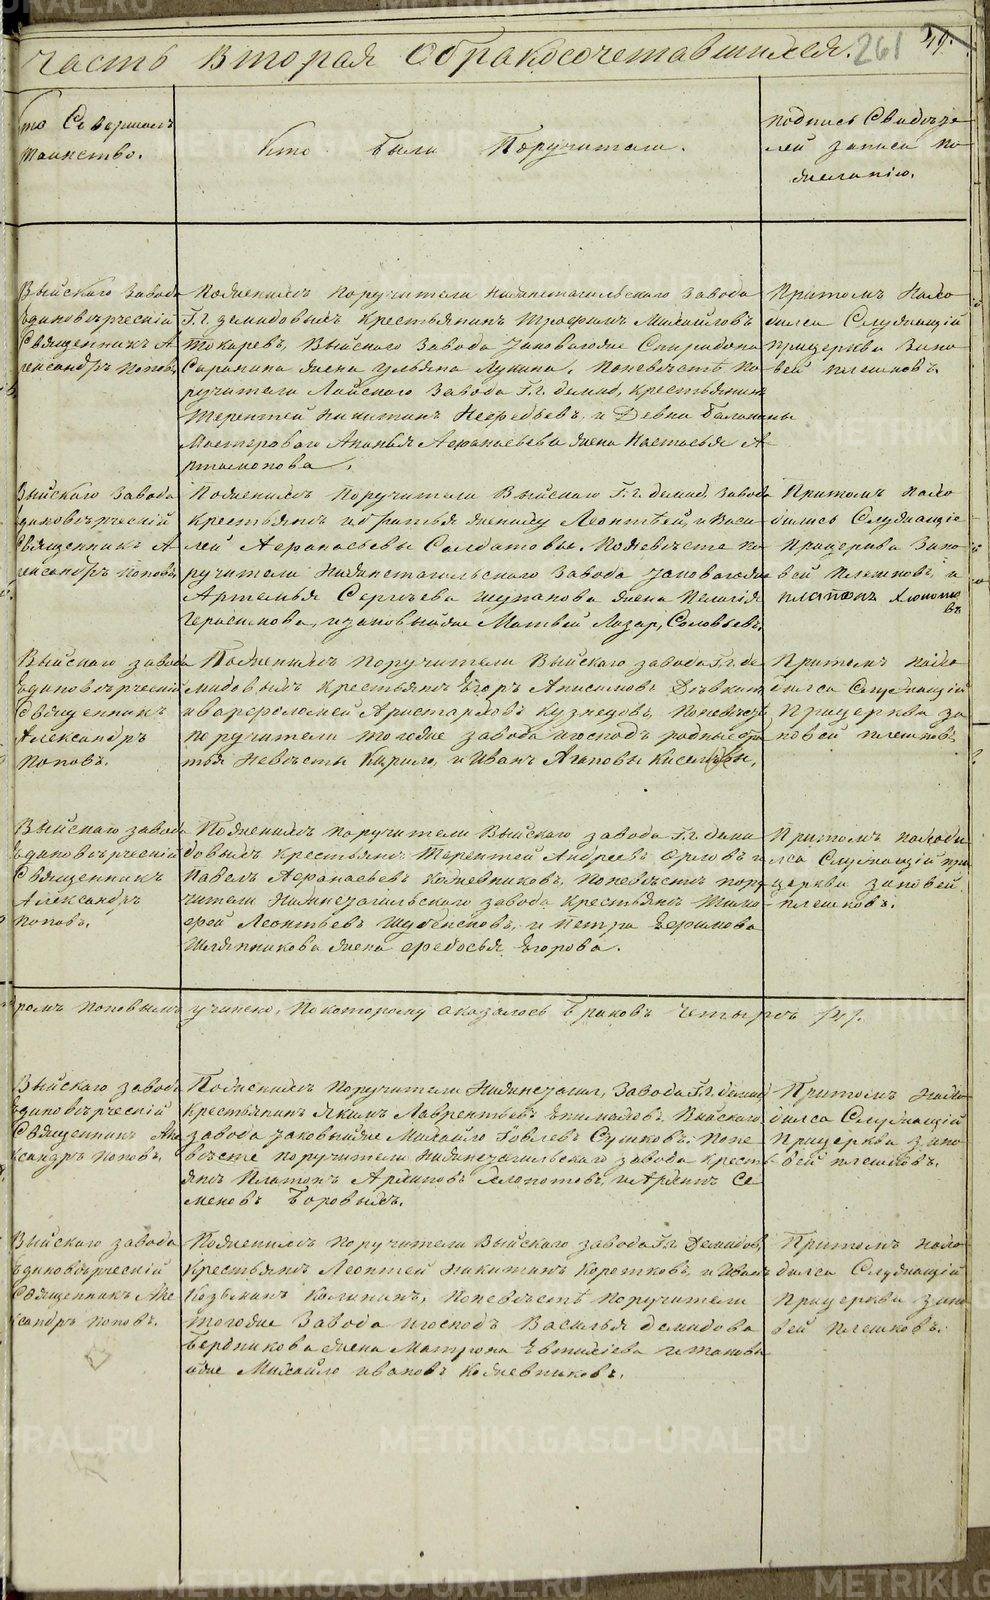 Часть вторая о бракосочетавшихся. 261
Кто Совершалъ
таинство.
Кто были Поручители.
подпись Свидѣте
лей записи по
желанію.
Выйскаго завода
Единовѣрческій
Священникъ А
лександръ Поповъ
Поженихѣ поручители Нижнетагильскаго завода
Г.г. демидовыхъ крестьянинъ Трофимъ Михайловъ
Токаревъ, Выйскаго завода Спиридона
жена Ульяна Лукина. Поневѣстѣ по
ручители Лайскаго завода Г.г. демид. крестьянинъ
Терентей Никитинъ и
Мастероваго Ананья Афанасьева жена Настасья А
ртамонова.
Притомъ нахо
дился Служащій
прицеркви Зино
вей плешковъ.
Выйскаго завода
Единовѣрческій
Священникъ А
лександръ поповъ
Поженихѣ поручители Выйскаго Г.г. демид. завода
крестьянъ и братья жениху Леонтей, и Васи
лей Афанасьевы Солдатовы. Поневѣсте по
ручители Нижнетагильскаго завода
Артемья Сергѣева жена Пелагія
Герасимова, Матвей Лазар, Соловьевъ
Притомъ нахо
дились Служащіе
Прицеркви Зино
вей Плешковъ, и
платонъ
Выйскаго завода
Единовѣрческій
Священникъ
Александръ
Поповъ.
Поженихѣ поручители Выйскаго завода Г.г. де
мидовыхъ крестьянъ Егоръ Анисимовъ
иварфоломей Аристарховъ Кузнецовъ, поневѣстѣ
поручители тогоже завода игосподъ родные бра
тья невѣсты Кирило, и Иванъ Агаповы Киселевы,
Притомъ нахо
дился Служащій
Прицеркви зи
новей плешковъ
Выйскаго завода
Единовѣрческій
Священникъ
Александръ
Поповъ.
Поженихѣ поручители Выйскаго завода Г.г. деми
довыхъ крестьянъ Терентей Андреевъ Орловъ и
Павелъ Афанасьевъ Кожевниковъ, Поневѣстѣ пору
чители Нижнетагильскаго завода крестьянъ Тимо
фей Леонтьевъ и Петра Ефимова
Шляпникова жена Федосья Егорова.
Притомъ находи
лся Служащій при
церкви зиновей
плешковъ.
ромъ Поповымъ учинено, По которому оказалось браковъ четыре /4/.
Выйскаго завода
Единовѣрческій
Священникъ Але
ксандръ Поповъ.
Поженихѣ поручители Нижнетагил, завода Г.г. демид
крестьянинъ Якимъ Лаврентьевъ Выйскаго
завода Михайло Сушковъ. Поне
вѣсте поручители Нижнетагильскаго завода кресть
янъ Платонъ Архиповъ и Архипъ Се
меновъ Боровыхъ.
Притомъ нахо
дился Служащій
Прицеркви зино
вей плешковъ.
Выйскаго завода
Единовѣрческій
Священникъ Але
ксандръ Поповъ.
Поженихѣ Поручители Выйскаго завода Г.г. Демидов,
крестьянъ Леонтей Никитинъ Коротковъ, и Иванъ
Козьминъ Калининъ, поневѣстѣ поручители
тогоже завода игосподъ Василья демидова
жена Матрона Евтихіева
Михайло Ивановъ Кожевниковъ.
Притомъ нахо
дился Служащій
прицеркви Зино
вей плешковъ.
METRIKI.GASO-URAL.RU